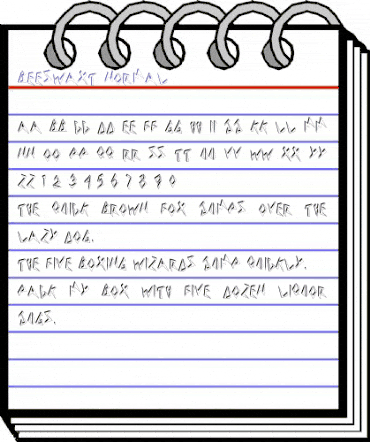 BEESWAXT NORMAL
AA BB CC DD EE FF GG HH II JJ KK LL MM
NN OO PP QQ RR SS TT UU VV WW XX YY
ZZ 1 2 3 4 5 6 7 8 9 0
THE QUICK BROWN FOX JUMPS OVER THE
LAZY DOG.
THE FIVE BOXING WIZARDS JUMP QUICKLY.
PACK MY BOX WITH FIVE DOZEN LIQUOR
JUGS.